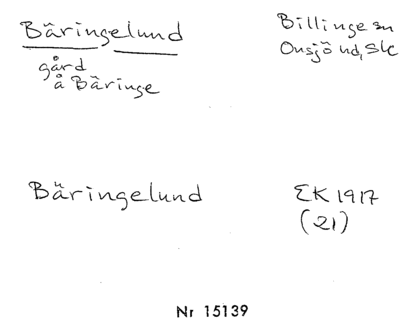 Bäringelund
gård
å Bäringe
Billinge sn
Onsjö hd, Sk
Bäringelund
EK 1917
(21)
Nr 15139